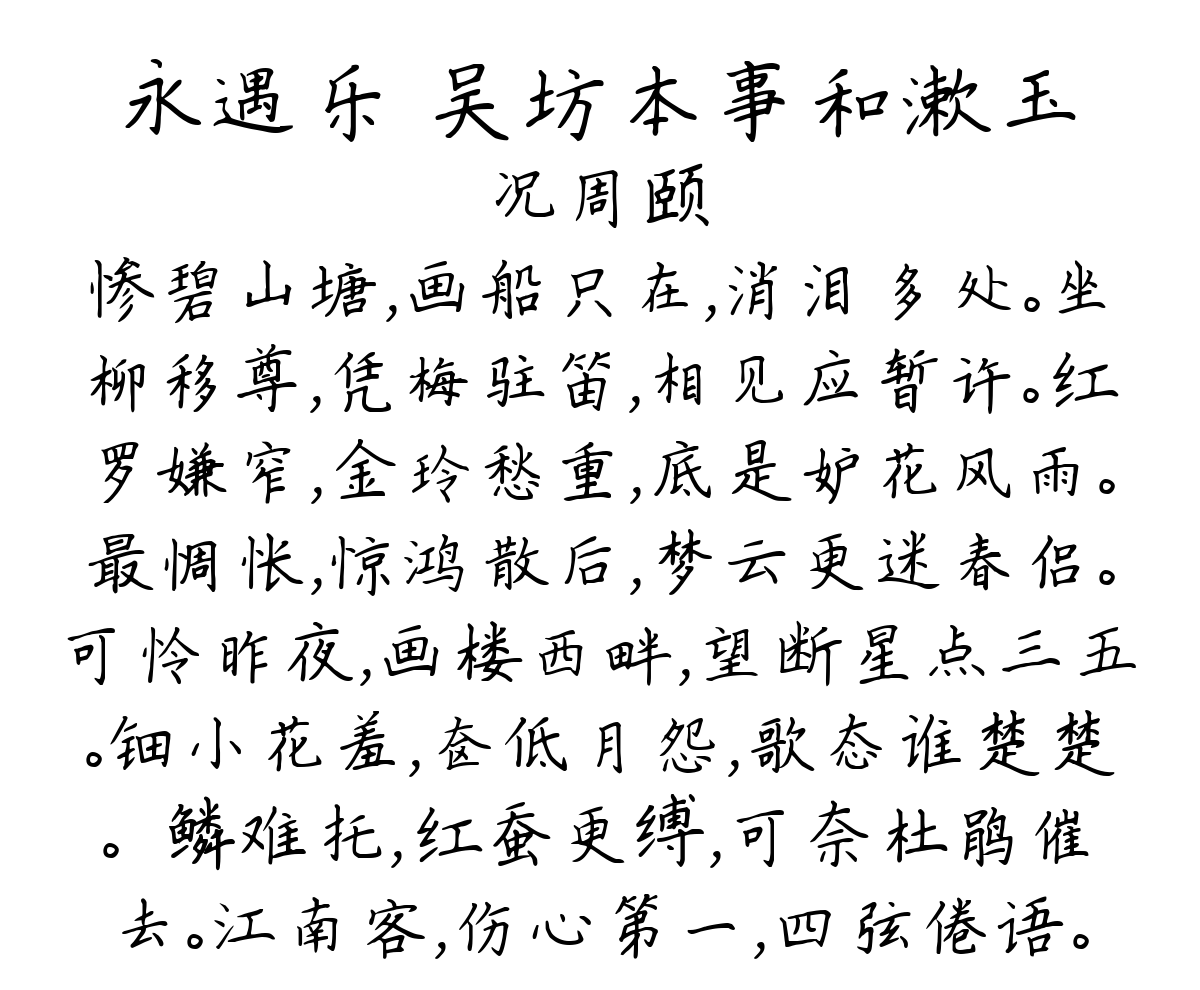 永遇乐 吴坊本事和漱玉
况周颐
惨碧山塘,画船只在,消泪多处。坐
柳移尊,凭梅驻笛,相见应暂许。红
罗嫌窄,金玲愁重,底是妒花风雨。
最惆怅,惊鸿散后,梦云更迷春侣。
可怜昨夜,画楼西畔,望断星点三五
。钿小花羞,奁低月怨,歌态谁楚楚
。鳞难托,红蚕更缚,可奈杜鹃催
去。江南客,伤心第一,四弦倦语。